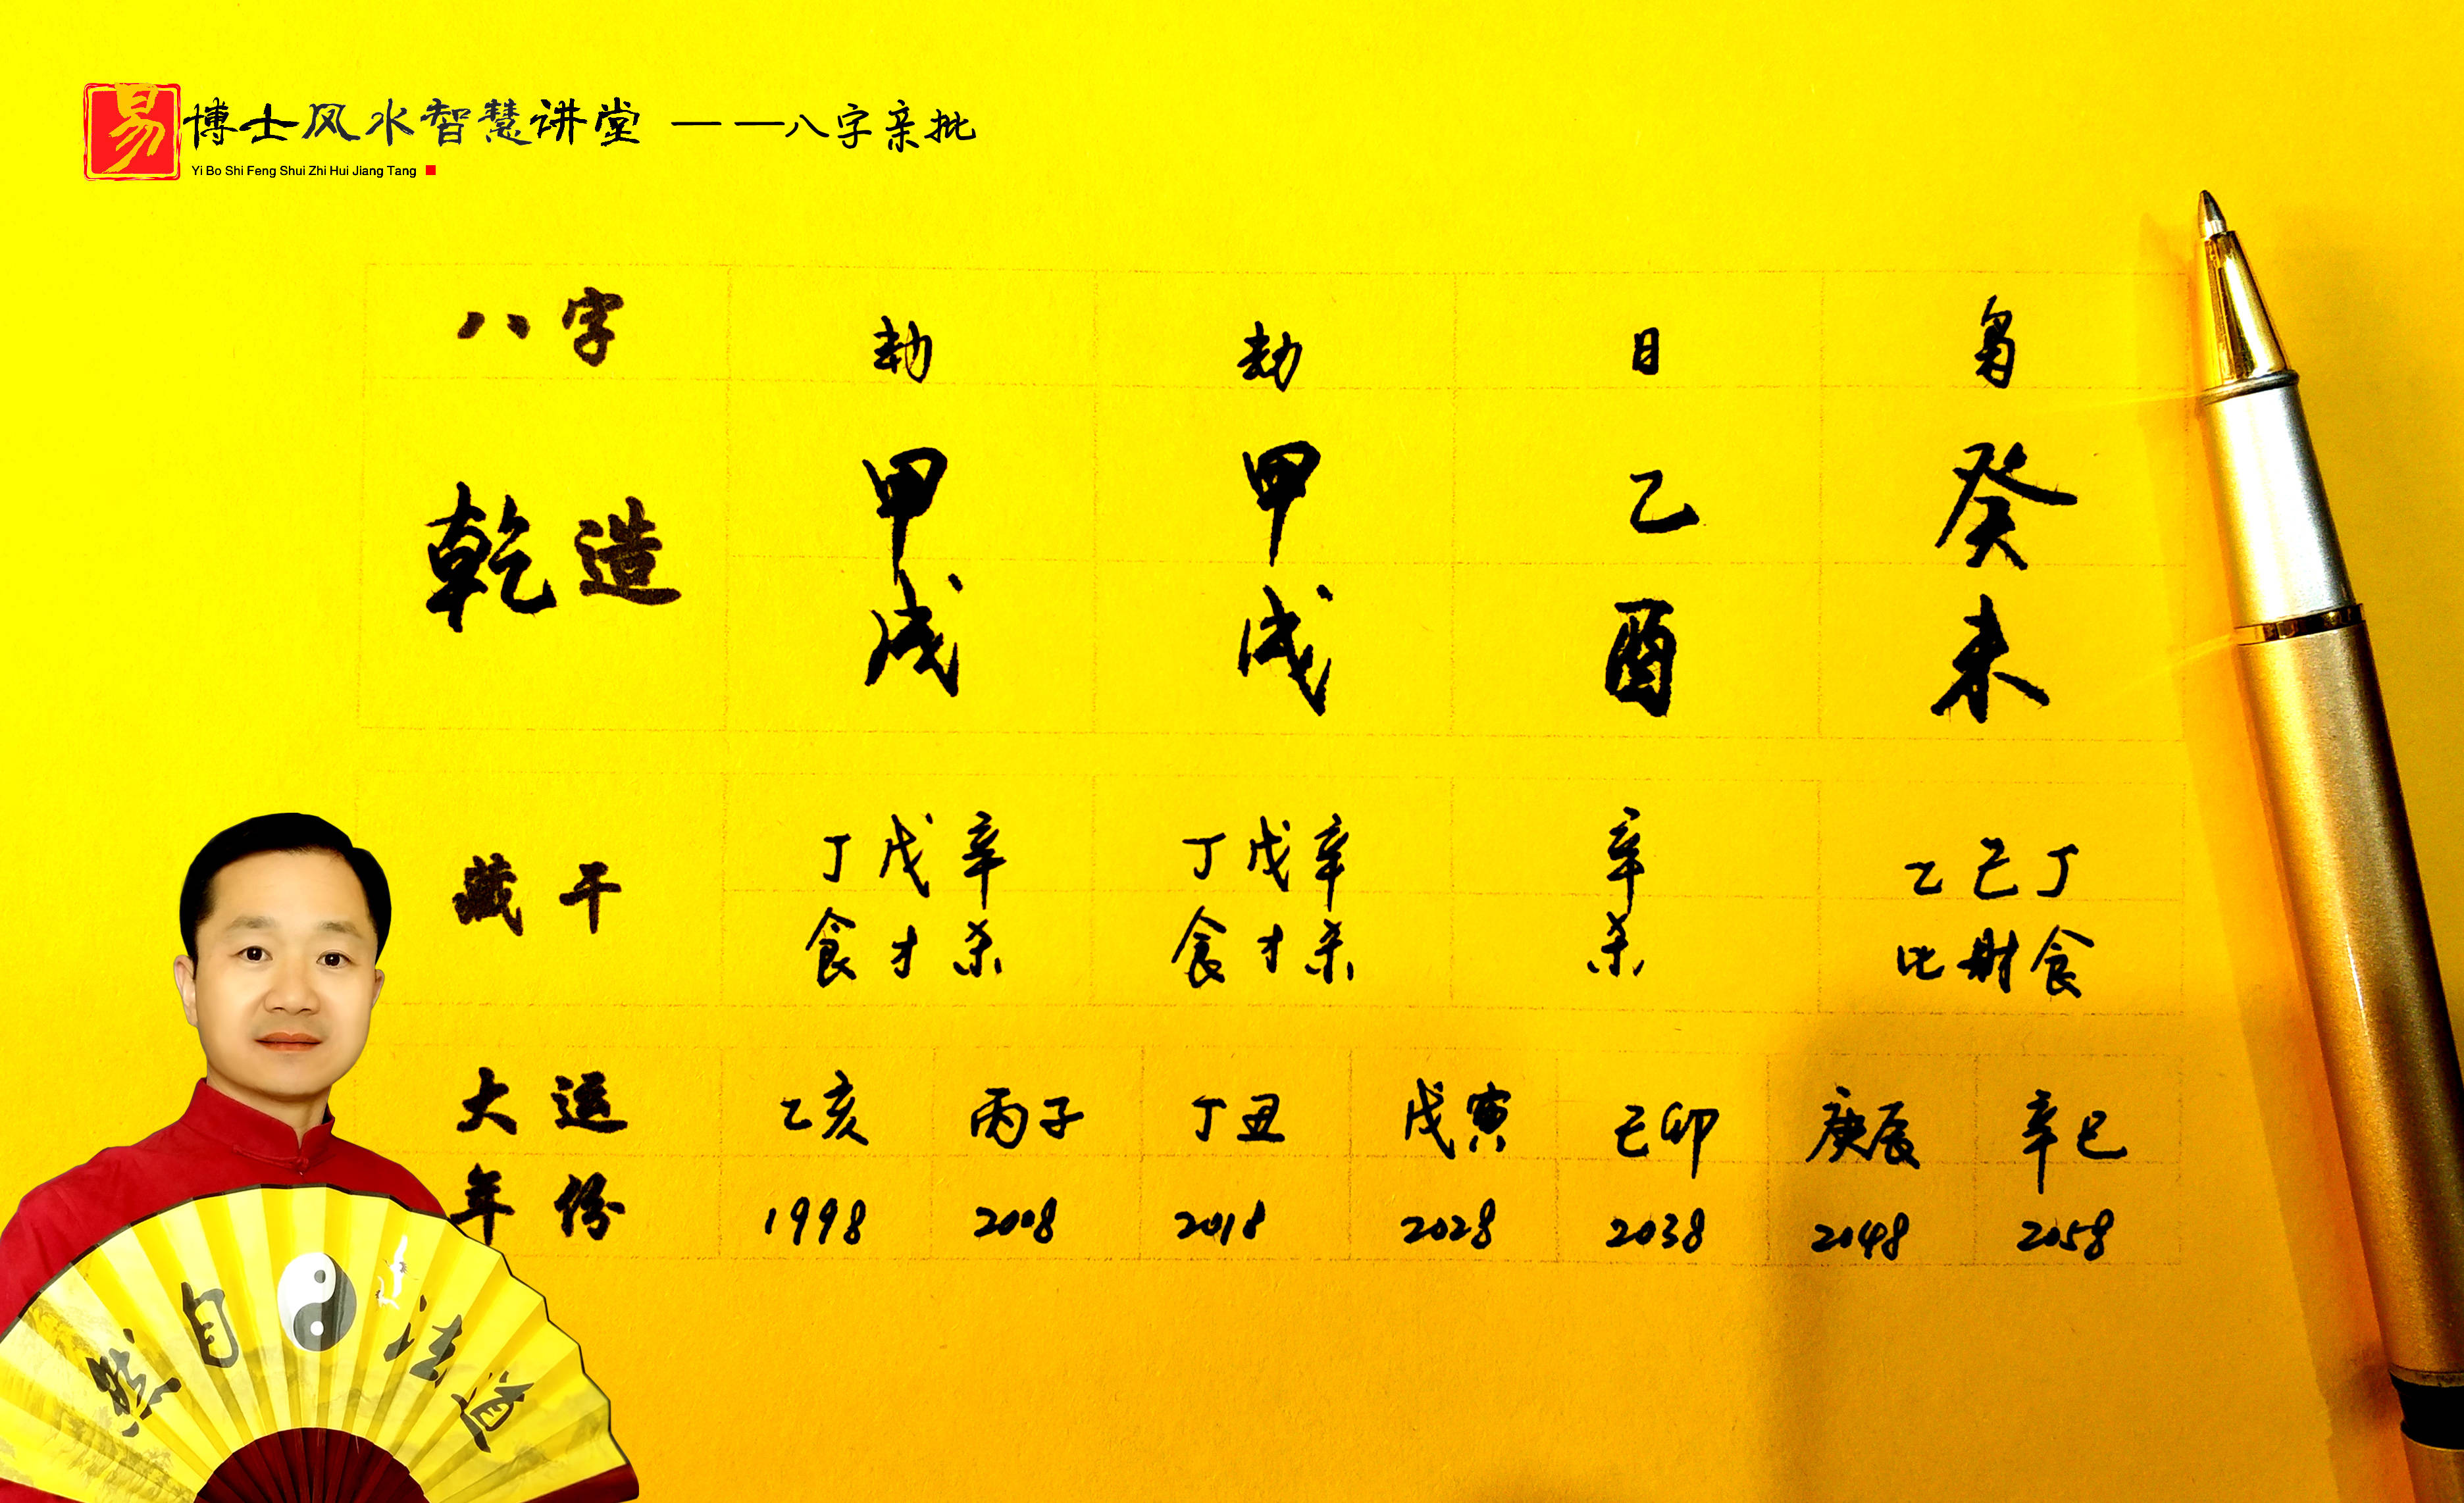 易博士风水智慧讲堂 ——八字亲批
Yi Bo Shi Feng Shui Zhi Hui Jiang Tang
八字 劫 劫 日 枭
乾造 甲 甲 乙 癸
戌 戌 酉 未
藏干 丁戊辛 丁戊辛 辛 乙己丁
食才杀 食才杀 杀 比财食
大运 乙亥 丙子 丁丑 戊寅 己卯 庚辰 辛巳
年份 1998 2008 2018 2028 2038 2048 2058
道法自然